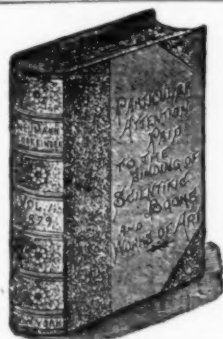 PARTICULAR
ATTENTION
PAID
TO THE
BINDING OF
SCIENTIFIC
BOOKS
AND
WORKS OF ART
VOL.